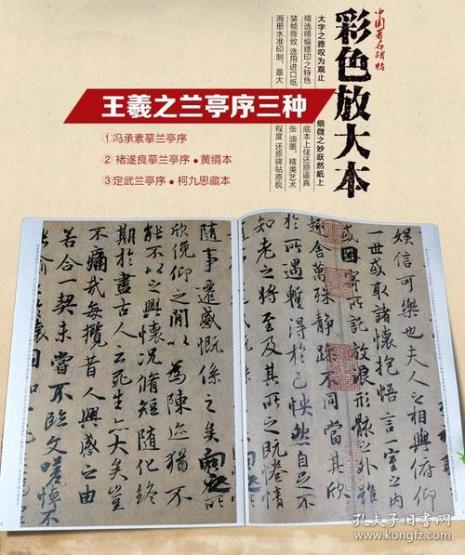 中国著名碑帖
彩色放大本
大字之雅叹为观止
细微之妙跃然纸上
精选精编精印之特色
底本上佳还原逼真
装帧雅致 选用进口纸
张 油墨，精美艺术
画册水准印制，最大
程度 还原碑帖原貌
王羲之兰亭序三种
①冯承素摹兰亭序
②褚遂良摹兰亭序•黄绢本
③定武兰亭序•柯九思藏本
娱信可樂也夫人之相與俯仰
一世或取諸懷抱悟言一室之内
或因寄所託放浪形骸之外雖
趣舍萬殊靜躁不同當其欣
於所遇暫得於己怏然自足不
知老之將至及其所之既惓情
隨事遷感慨係之矣向之所
欣俛仰之間以為陳迹猶不
能不以之興懷況脩短隨化終
期於盡古人云死生亦大矣豈
不痛哉每攬昔人興感之由
若合一契未嘗不臨文嗟悼不
孔夫子旧书网
kongfz.com